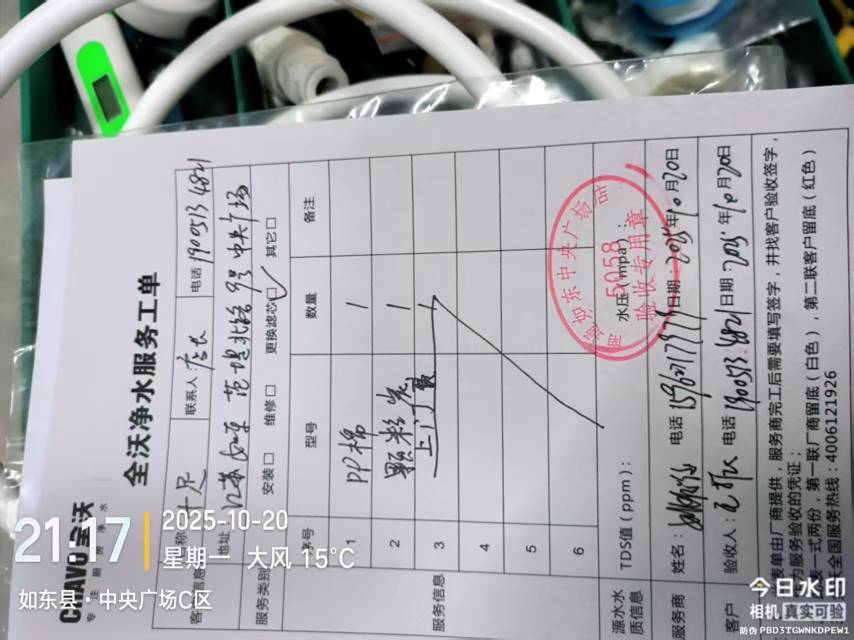 CHAVO 全沃
专注厨房净水
全沃净水服务工单
客户信息
名称 十足
联系人: 店长
电话 19005134821
地址 江苏如东范堤北路9号中央广场
服务类别 安装□ 维修□ 更换滤芯☑ 其它□
服务信息
序号 型号 数量 备注
1 PP棉 1
2 颗粒炭 1
3 上门费 1
4
5
6
源水水质信息
TDS值(ppm):
水压(mpa):
东中央广场
5058
验收专用章
服务商 姓名: 电话 日期: 2025年10月20日
客户 验收人: 电话 19005134821 日期: 2025年10月20日
表单由厂商提供,服务商完工后需要填写签字,并找客户验收签字,
为服务验收的凭证;
表一式两份,第一联厂商留底(白色),第二联客户留底(红色)
沃全国服务热线:4006121926
21:17
2025-10-20
星期一 大风 15℃
如东县·中央广场C区
今日水印
相机 真实可验
防伪 PBD3TGWNKDPEW1